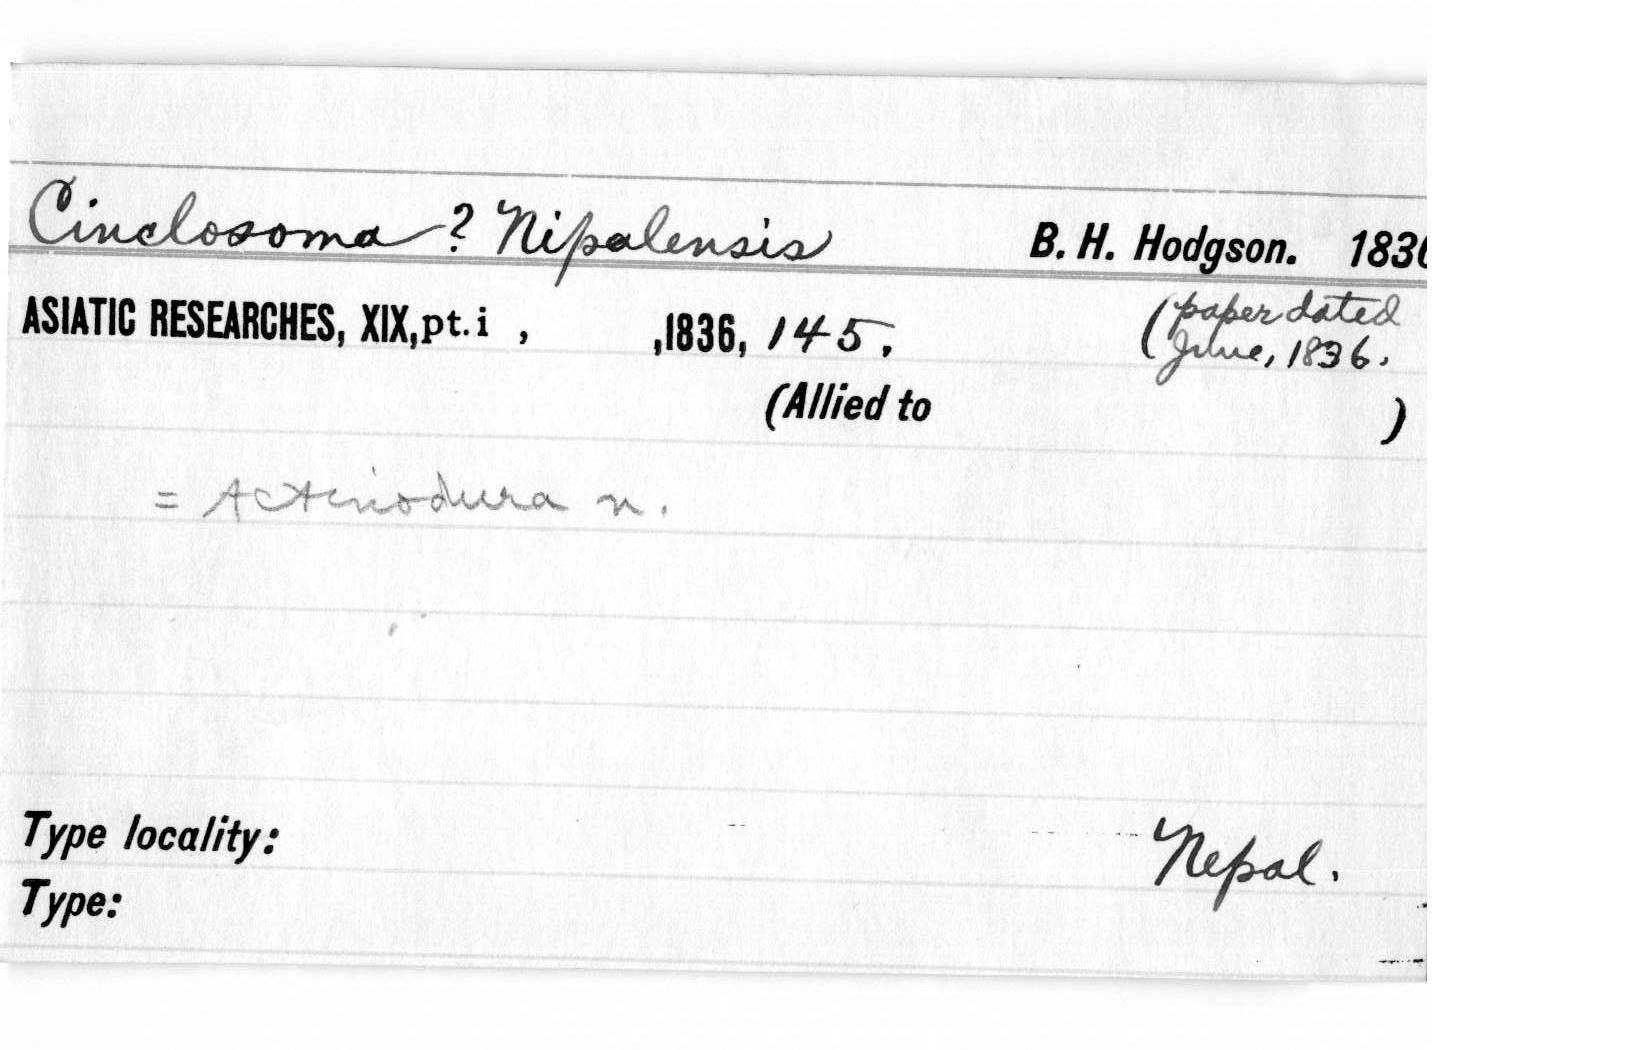 Cinclosoma ? Nipalensis B. H. Hodgson. 1836
ASIATIC RESEARCHES, XIX, pt. i , ,1836, 145. (paper dated
( June, 1836.
(Allied to )
= Actinodura n.
Type locality: Nepal.
Type: